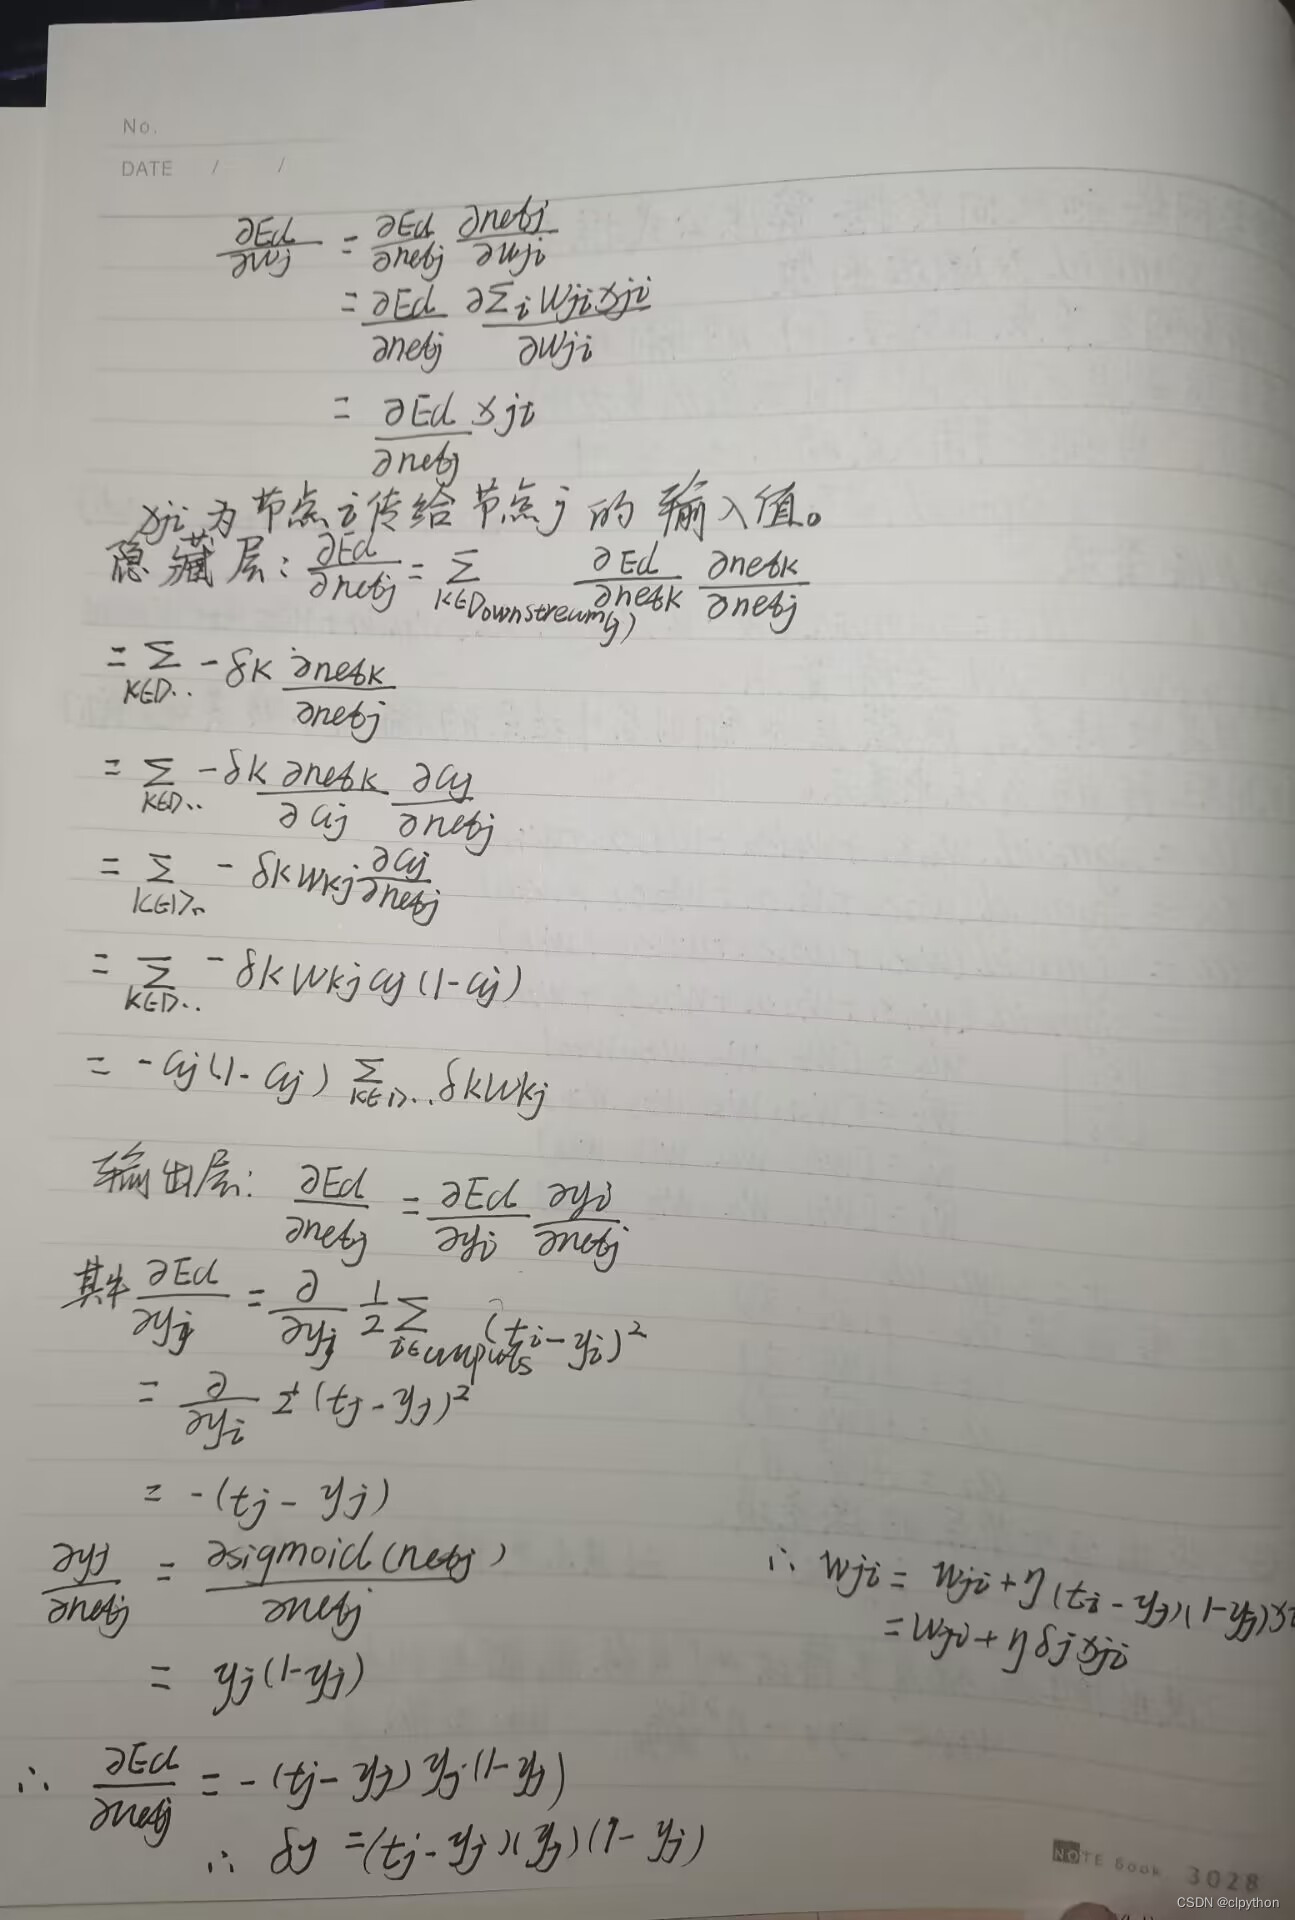 No.
DATE / /
∂Ed/∂wj = ∂Ed/∂netj ∂netj/∂wji
= ∂Ed/∂netj ∂Σi wjixji/∂wji
= ∂Ed/∂netj xji
xji 为节点i传给节点j的输入值。
隐藏层: ∂Ed/∂netj = Σ k∈Downstream(j) ∂Ed/∂netk ∂netk/∂netj
= Σ k∈D.. -δk ∂netk/∂netj
= Σ k∈D.. -δk ∂netk/∂aj ∂aj/∂netj
= Σ k∈D.. -δk wkj ∂aj/∂netj
= Σ k∈D.. -δk wkj aj (1-aj)
= -aj(1-aj) Σ k∈D.. δk wkj
输出层: ∂Ed/∂netj = ∂Ed/∂yi ∂yi/∂netj
其中 ∂Ed/∂yj = ∂/∂yj 1/2 Σ i∈outputs (ti-yi)²
= ∂/∂yi 1/2 (tj-yj)²
= -(tj-yj)
∂yj/∂netj = ∂sigmoid(netj)/∂netj
= yj(1-yj)
∴ ∂Ed/∂netj = -(tj-yj) yj (1-yj)
∴ δy = (tj-yj)(yj)(1-yj)
∴ wji = wji+η(ti-yj)(1-yj)x
= wji+ηδjxji
NOTE Book 3028
CSDN @clpython